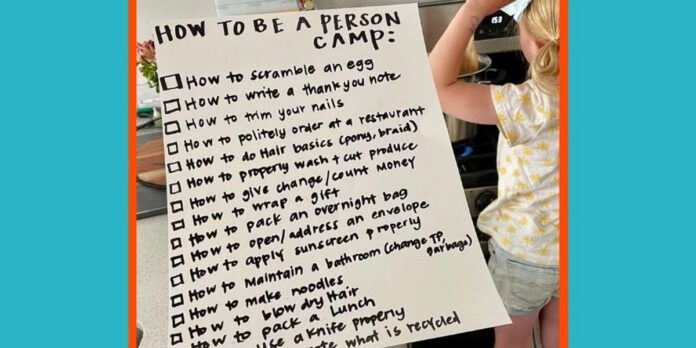 HOW TO BE A PERSON
CAMP:
How to scramble an egg
How to write a thank you note
How to trim your nails
How to politely order at a restaurant
How to do Hair basics (pony, braid)
How to properly wash + cut produce
How to give change/count Money
How to wrap a gift
How to pack an overnight bag
How to open/address an envelope
How to apply sunscreen properly
How to Maintain a bathroom (change TP,
garbages)
How to make noodles
How to blow dry Hair
How to pack a Lunch
use a knife properly
what is recycled